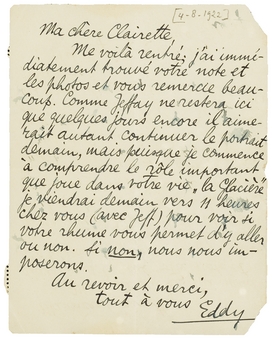 [4-8-1922]
Ma chère Clairette,
Me voilà rentré, j'ai immé-
diatement trouvé votre note et
les photos et vous remercie beau-
coup. Comme Jeffay ne restera ici
que quelques jours encore il aime-
rait autant continuer le portrait
demain, mais puisque je commence
à comprendre le rôle important
que joue dans votre vie, la Glacière
je viendrai demain vers 11 heures
chez vous (avec Jeff) pour voir si
votre rhume vous permet d'y aller
ou non. Si non, nous nous im-
poserons.
Au revoir et merci,
tout à vous
Eddy